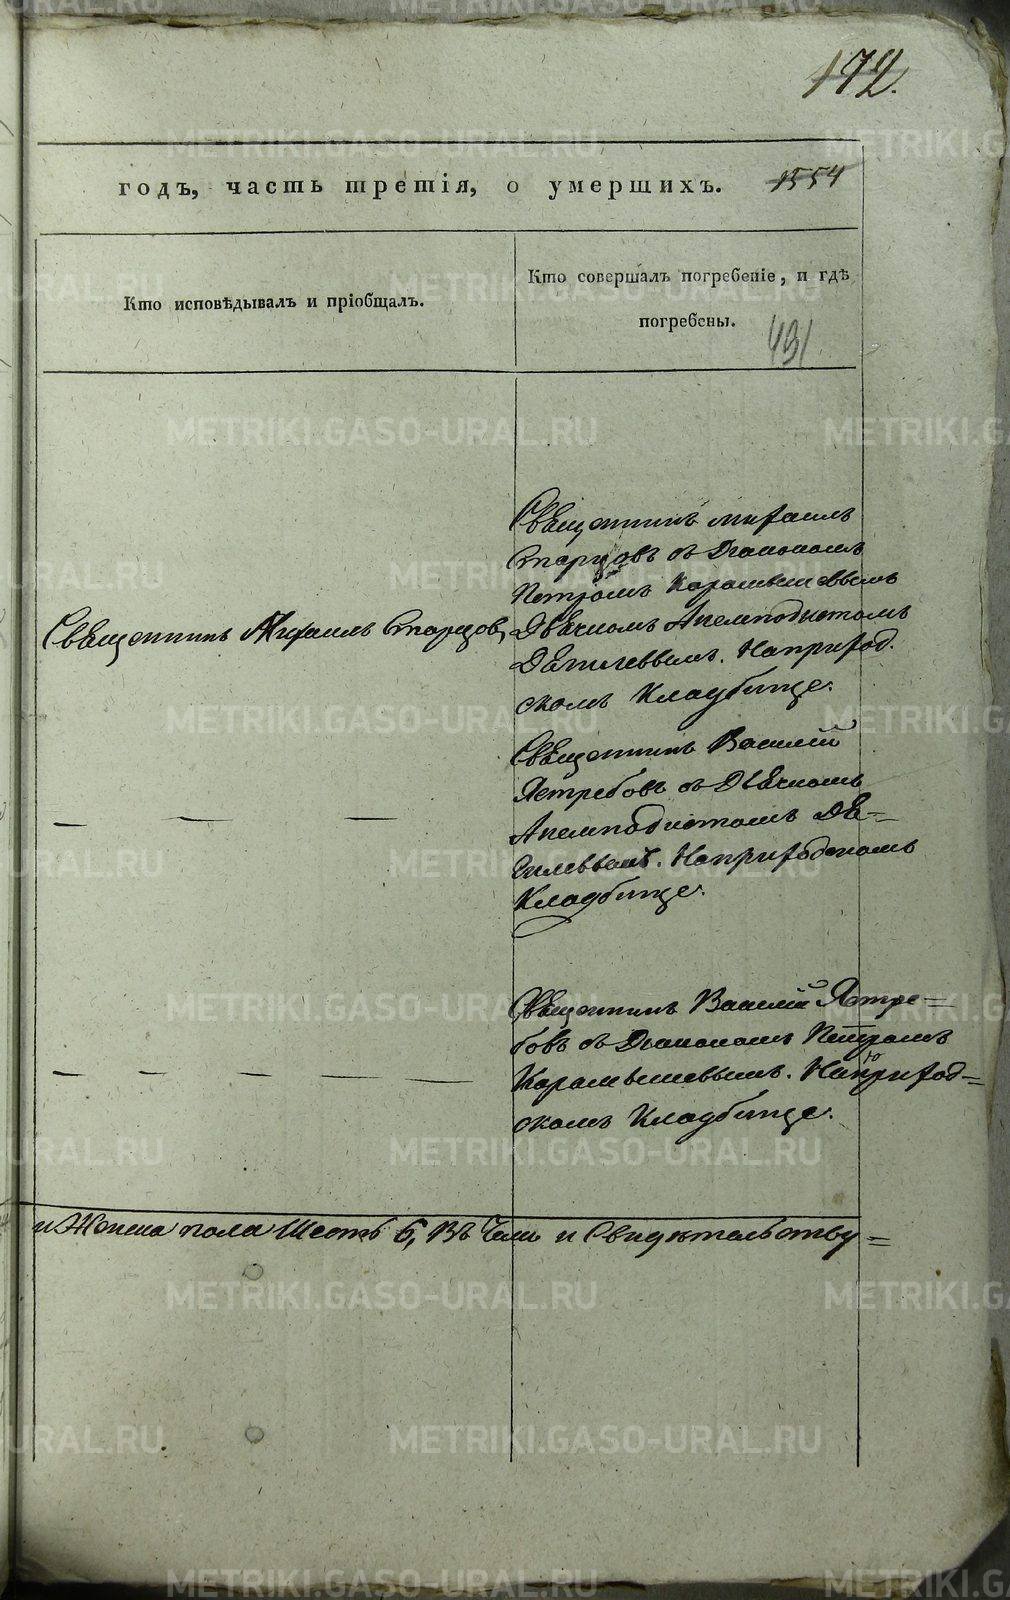 172.
годъ, часть третія, о умершихъ. 1554
Кто исповѣдывалъ и пріобщалъ.
Кто совершалъ погребеніе, и гдѣ
погребены.
491
Священникъ Михаилъ
Старцовъ съ Діакономъ
Петромъ Карамышевымъ
Священникъ Михаилъ Старцовъ
Дьячкомъ Апемподистомъ
Дягилевымъ. На приход.
скомъ Кладбище.
Священникъ Василій
Ястребовъ съ Дьячкомъ
Апемподистомъ Дя=
гилевымъ. На приходскомъ
Кладбище.
Священникъ Василій Ястре=
бовъ съ Діакономъ Петромъ
Карамышевымъ. На приход=
скомъ Кладбище.
и Женска пола Шесть 6, Въ Чемъ и Свидѣтельству=
METRIKI.GASO-URAL.RU